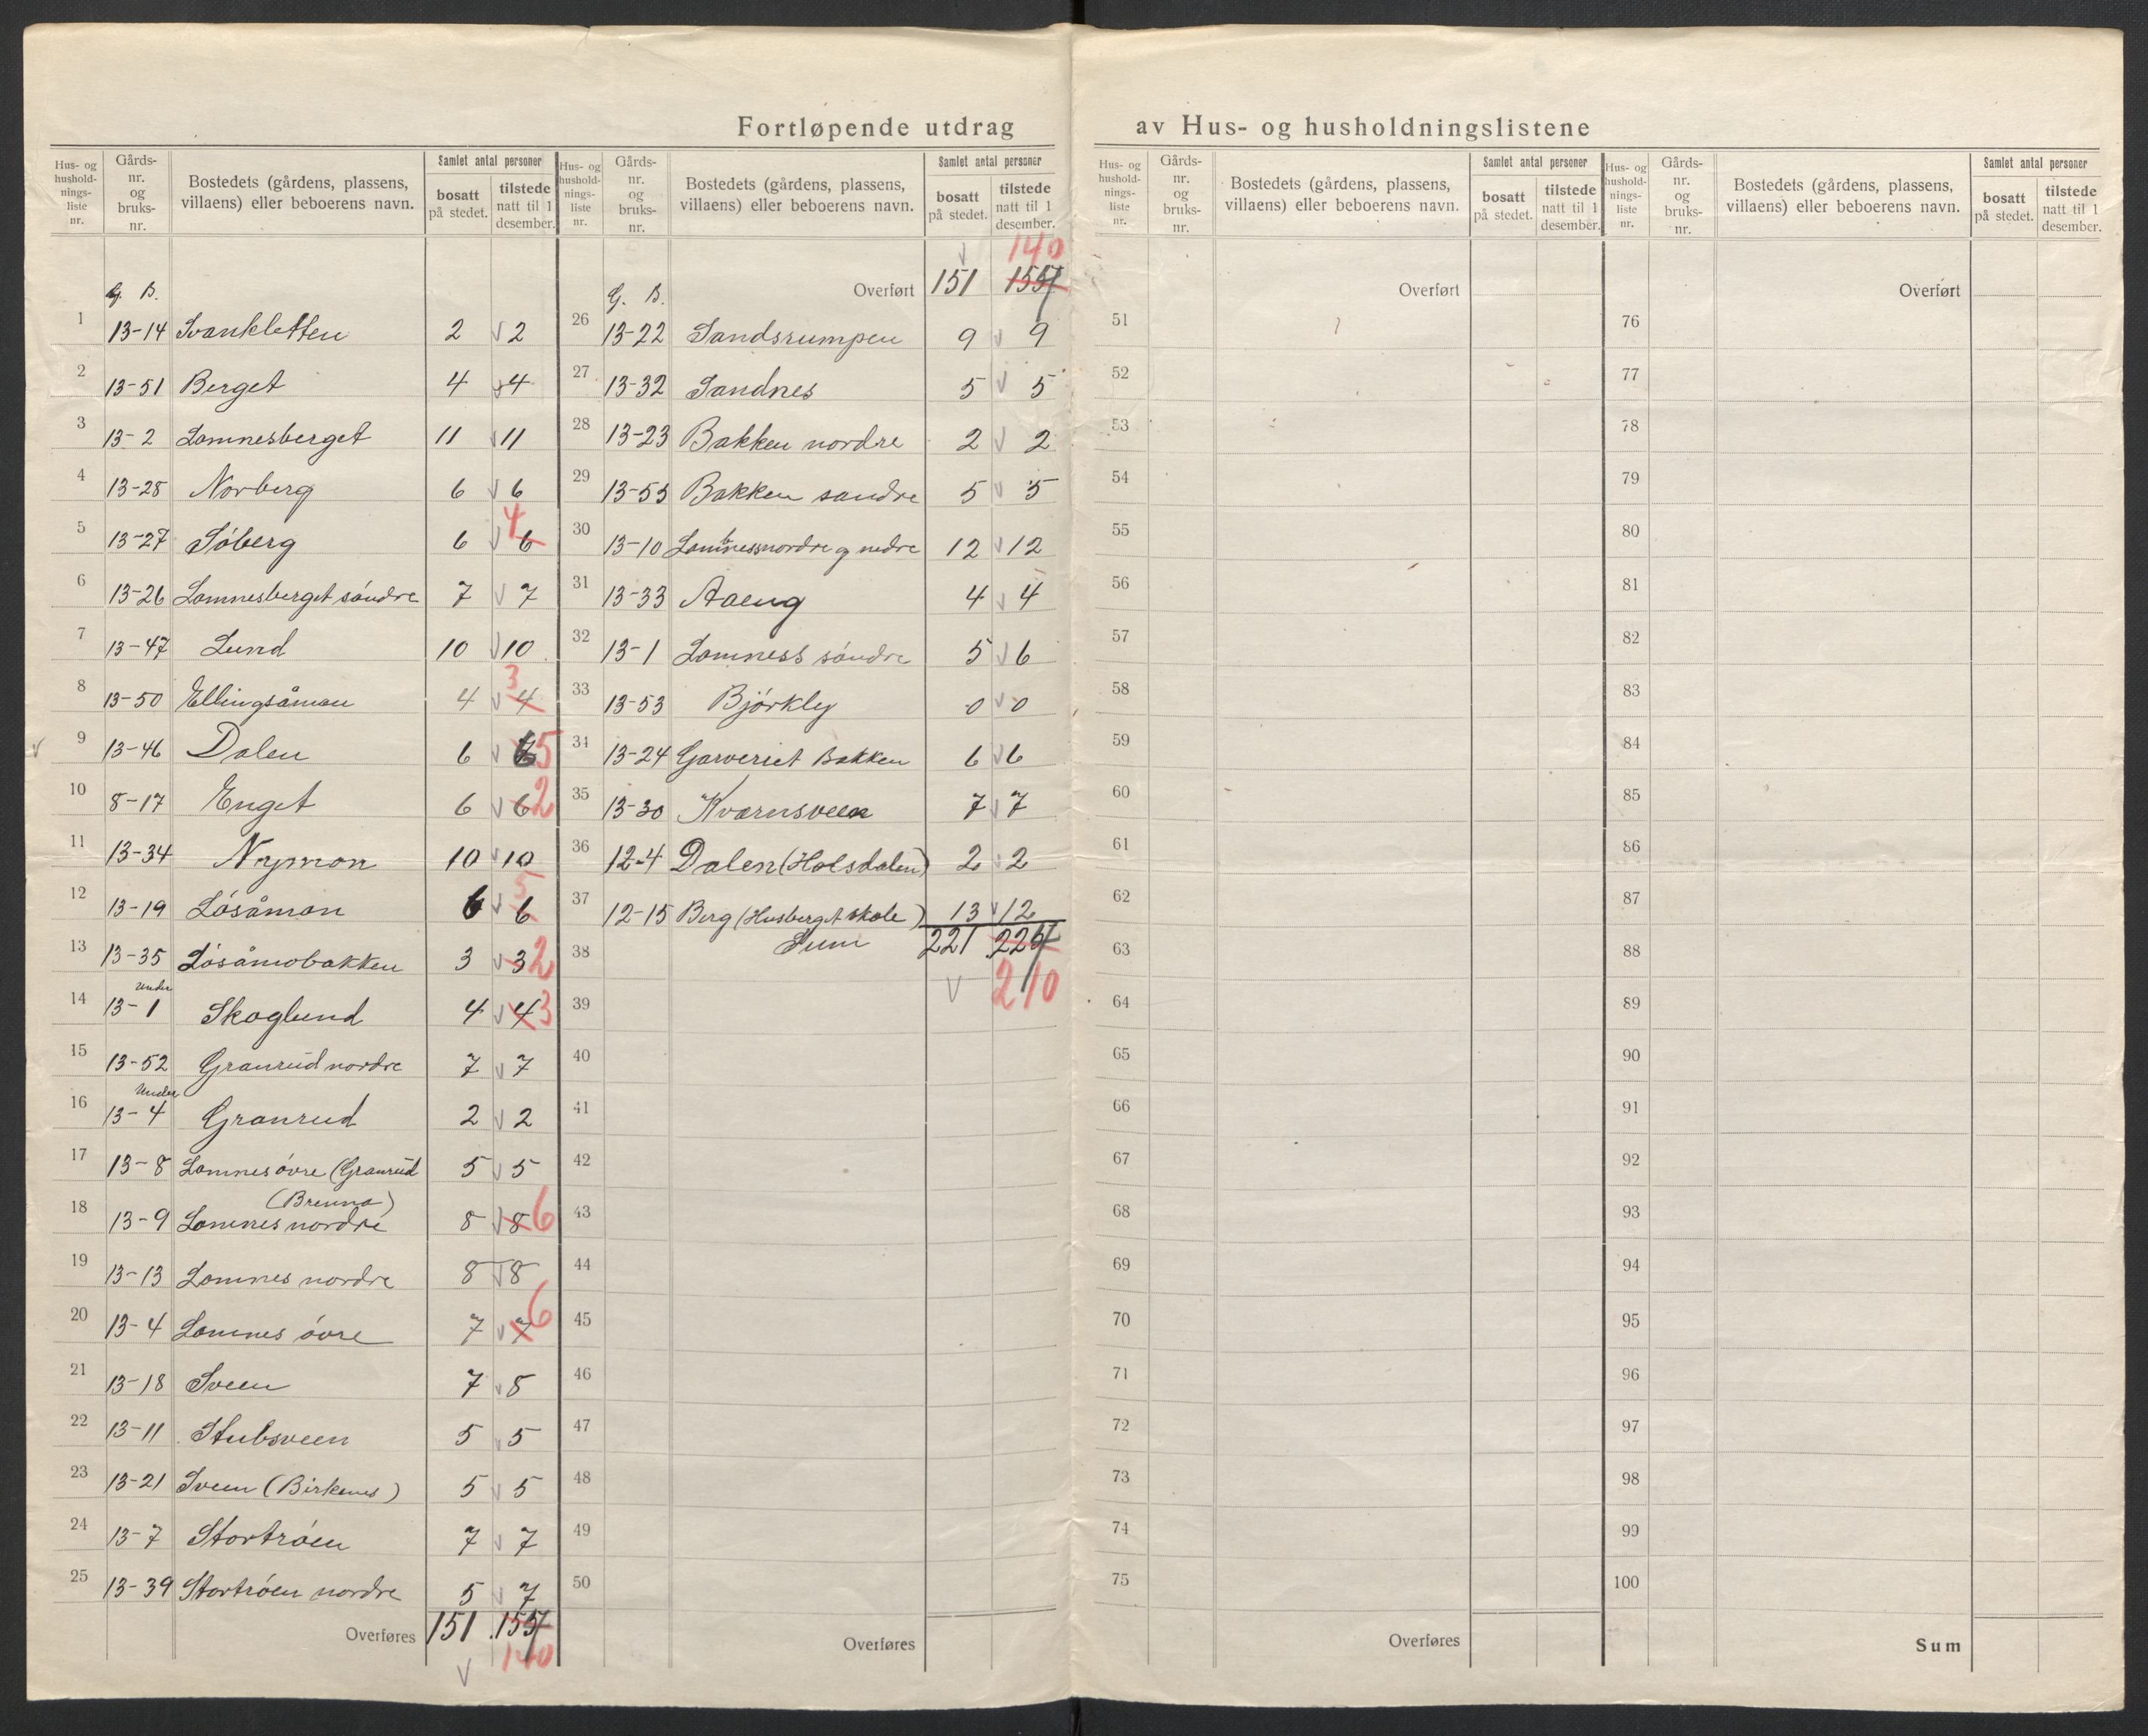 Fortløpende utdrag av Hus- og husholdningslistene
Hus- og husholdnings-liste nr. | Gårds-nr. og bruks-nr. | Bostedets (gårdens, plassens, villaens) eller beboerens navn. | Samlet antal personer | bosatt på stedet. | tilstede natt til 1 desember.
G. B.
1 13-14 Svankletten 2 2
2 13-51 Berget 4 4
3 13-2 Lomnesberget 11 11
4 13-28 Norberg 6 6
5 13-27 Söberg 6 6 4
6 13-26 Lomnesberget söndre 7 7
7 13-47 Lund 10 10
8 13-50 Ellingsåmoen 4 4 3
9 13-46 Dalen 6 5
10 8-17 Enget 6 6 2
11 13-34 Nymon 10 10
12 13-19 Lösåmon 6 6 5
13 13-35 Lösåmobakken 3 3 2
14 Under 13-1 Skoglund 4 4 3
15 13-52 Granrud nordre 7 7
16 Under 13-4 Granrud 2 2
17 13-8 Lomnes övre (Granrud 5 5
(Brenna)
18 13-9 Lomnes nordre 8 8 6
19 13-13 Lomnes nordre 8 8
20 13-4 Lomnes övre 7 7 6
21 13-18 Sveen 7 8
22 13-11 Stubsveen 5 5
23 13-21 Sveen (Birkenes) 5 5
24 13-7 Stortröen 7 7
25 13-39 Stortröen nordre 5 7
Overføres 151 157
140
Hus- og husholdnings-liste nr. | Gårds-nr. og bruks-nr. | Bostedets (gårdens, plassens, villaens) eller beboerens navn. | Samlet antal personer | bosatt på stedet. | tilstede natt til 1 desember.
140
G. B. Overført 151 157
26 13-22 Sandsrumpen 9 9
27 13-32 Sandnes 5 5
28 13-23 Bakken nordre 2 2
29 13-55 Bakken søndre 5 5
30 13-10 Lomnessnordre og nedre 12 12
31 13-33 Aaeng 4 4
32 13-1 Lomness söndre 5 6
33 13-53 Björkly 0 0
34 13-24 Garveriet Bakken 6 6
35 13-30 Kvernsveen 7 7
36 12-4 Dalen (Holsdalen) 2 2
37 12-15 Berg (Husberget skole) 13 12
38 Sum 221 227
210
39
40
41
42
43
44
45
46
47
48
49
50
Overføres
Hus- og husholdnings-liste nr. | Gårds-nr. og bruks-nr. | Bostedets (gårdens, plassens, villaens) eller beboerens navn. | Samlet antal personer | bosatt på stedet. | tilstede natt til 1 desember.
Overført
51
52
53
54
55
56
57
58
59
60
61
62
63
64
65
66
67
68
69
70
71
72
73
74
75
Overføres
Hus- og husholdnings-liste nr. | Gårds-nr. og bruks-nr. | Bostedets (gårdens, plassens, villaens) eller beboerens navn. | Samlet antal personer | bosatt på stedet. | tilstede natt til 1 desember.
Overført
76
77
78
79
80
81
82
83
84
85
86
87
88
89
90
91
92
93
94
95
96
97
98
99
100
Sum